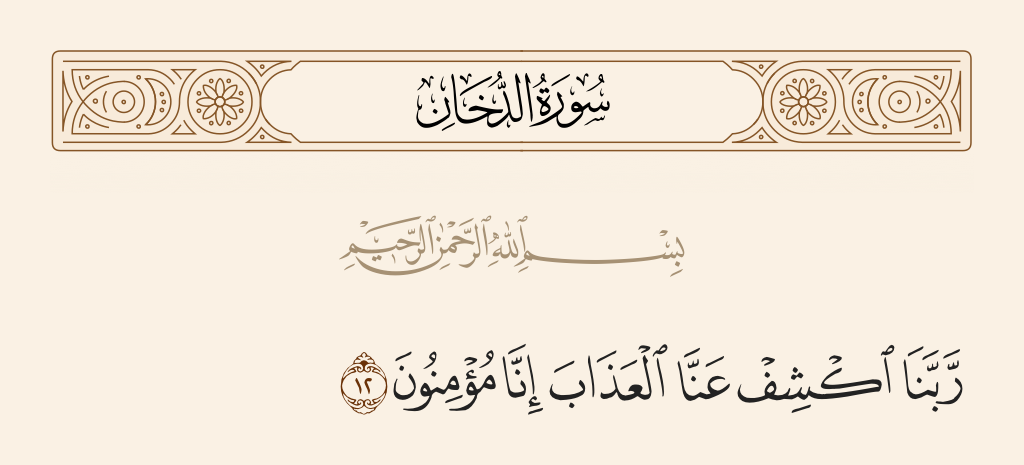 سُورَةُ الدُّخَانِ
بِسْمِ ٱللَّهِ ٱلرَّحْمَٰنِ ٱلرَّحِيمِ
رَّبَّنَا ٱكْشِفْ عَنَّا ٱلْعَذَابَ إِنَّا مُؤْمِنُونَ ١٢